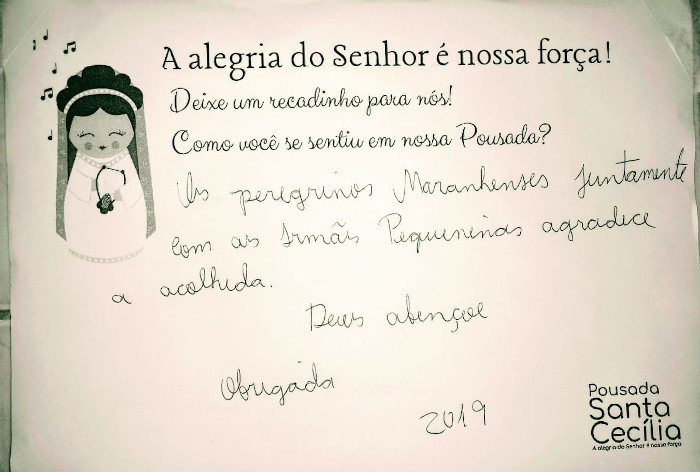 A alegria do Senhor é nossa força!
Deixe um recadinho para nós!
Como você se sentiu em nossa Pousada?
Os peregrinos Maranhenses Juntamente
com as Irmãs Pequeninas agradece
a acolhida.
Deus abençoe
Obrigada
2019
Pousada
Santa
Cecília
A alegria do Senhor é nossa força